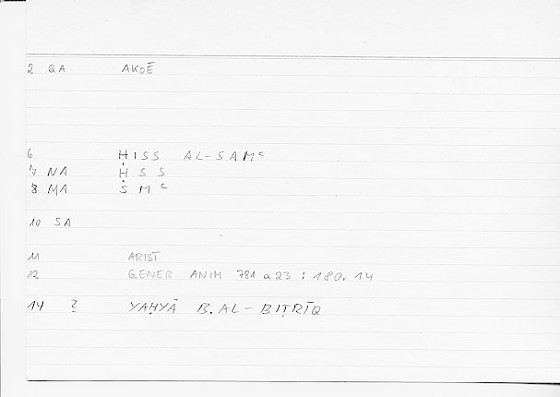 2 QA AKOĒ
6 ḤISS AL-SAMᶜ
7 NA Ḥ S S
8 MA S M ᶜ
10 SA
11 ARIST
12 GENER ANIM 781 a 23 : 180.14
14 ? YAḤYĀ B. AL-BIṬRĪQ